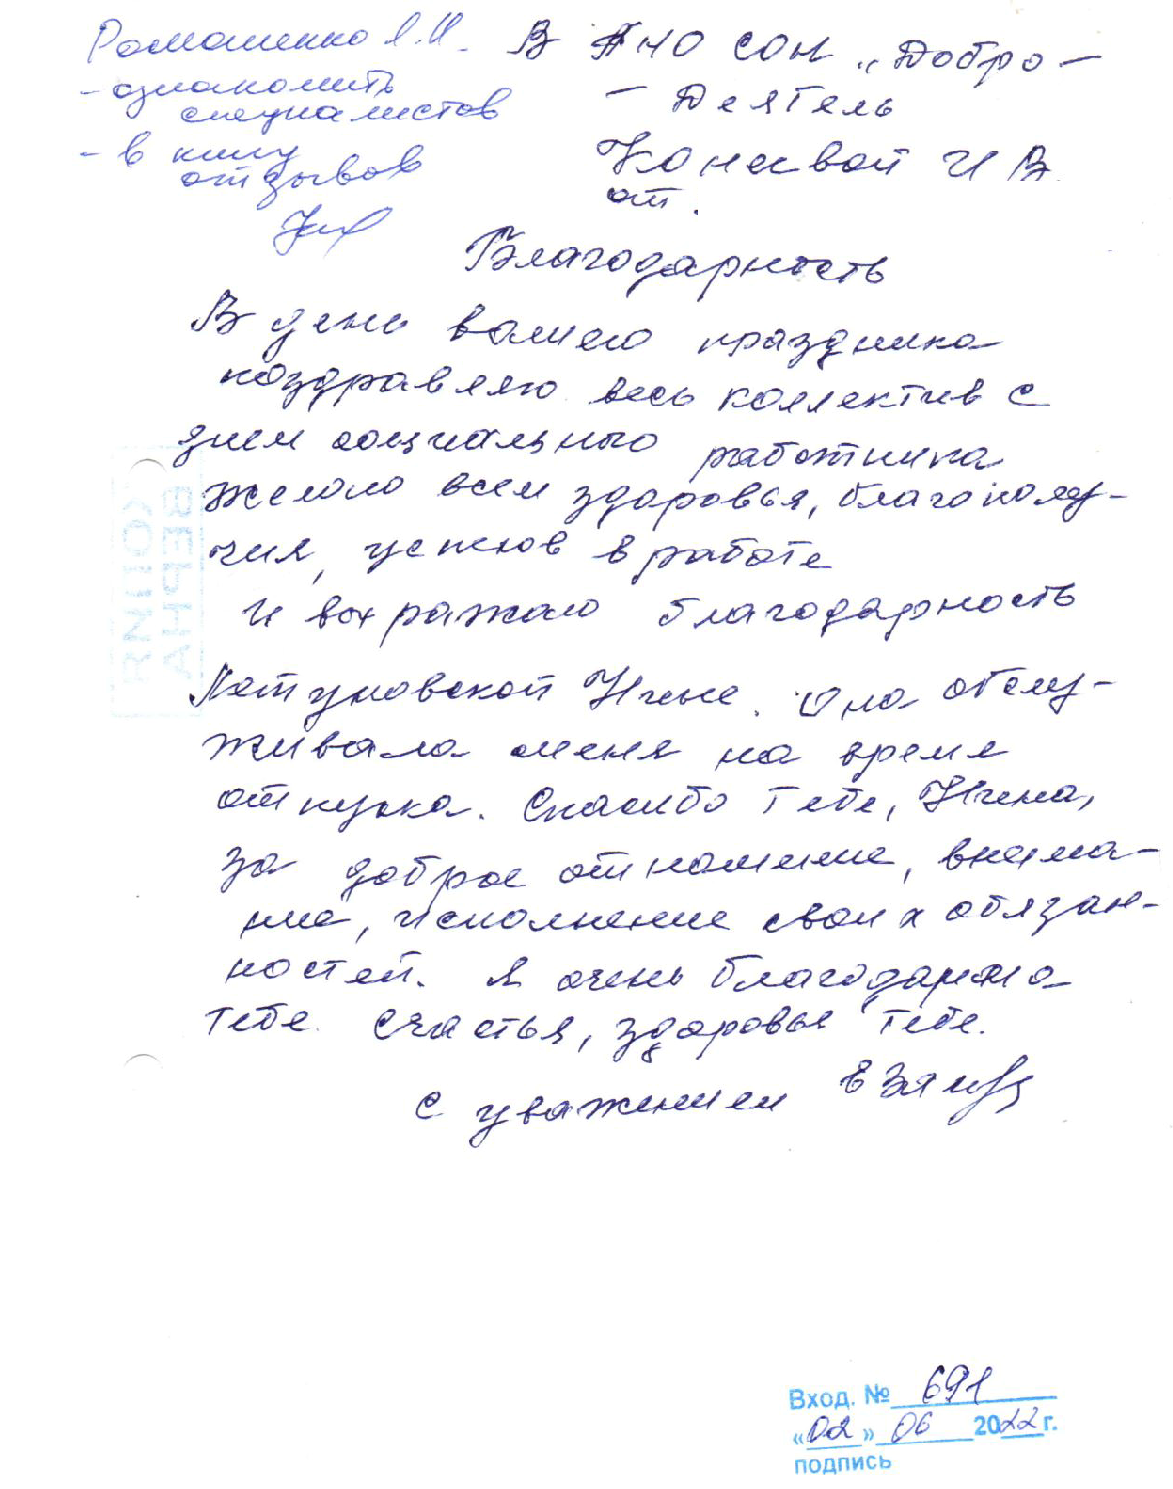 Романенко Л.И.
- ознакомить
специалистов
- в книгу
отзывов
В АНО СОН "Добро-
- деятель
И В
от.
Благодарность
В день вашего праздника
поздравляю весь коллектив с
днем социального работника
желаю всем здоровья, благополу-
чия, успехов в работе
И выражаю благодарность
Нине. Она обслу-
живала меня на время
отпуска. Спасибо тебе, Нина,
за доброе отношение, внима-
ние, исполнение своих обязан-
ностей. Я очень благодарна
тебе. Счастья, здоровья тебе.
С уважением
КОПИЯ
ВЕРНА
Вход. № 691
«02» 06 2022 г.
подпись